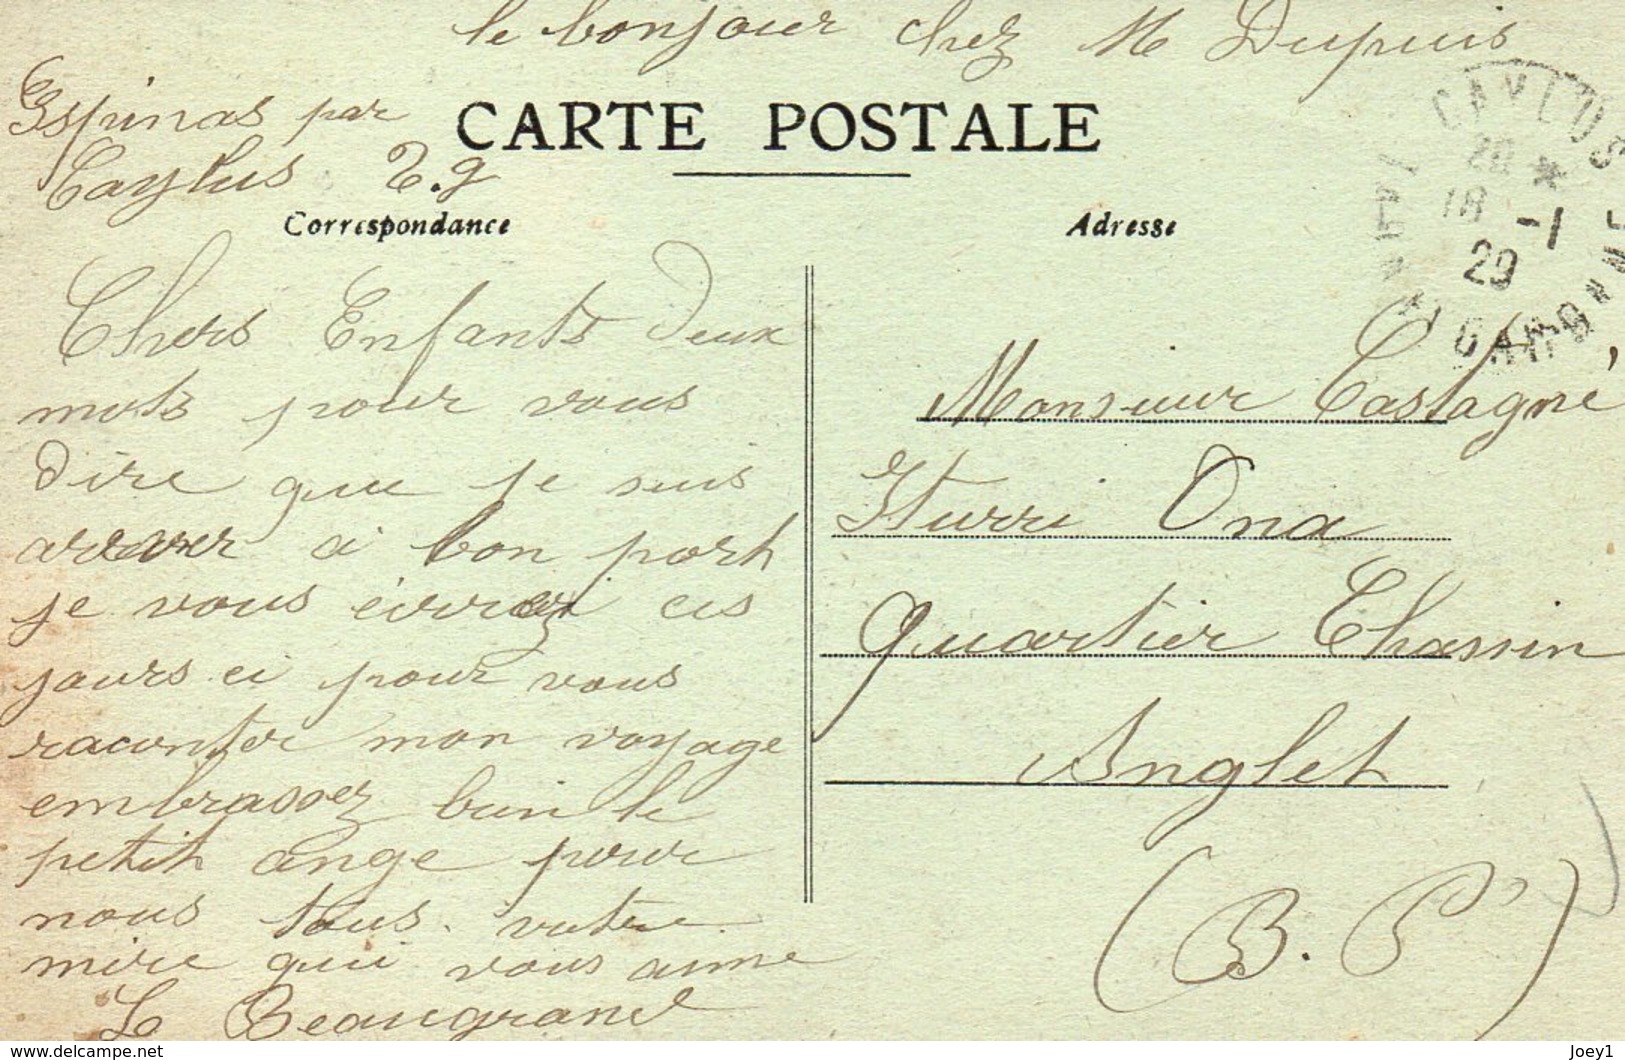 le bonjour chez M Dupuis
Espinas par
Caylus T.g
CARTE POSTALE
Correspondance
Adresse
CAYLUS
20 *
18 -1
29
TARN-ET-GARONNE
Chers Enfants Deux
mots pour vous
dire que je suis
arriver à bon port
je vous écrirez ces
jours ci pour vous
raconter mon voyage
embrassez bien le
petit ange pour
nous tous. votre
mère qui vous aime
Le Beaugrand
Monsieur Castagné
Iturri Ona
Quartier Chassin
Anglet
(B. P)
www.delcampe.net
Joey1